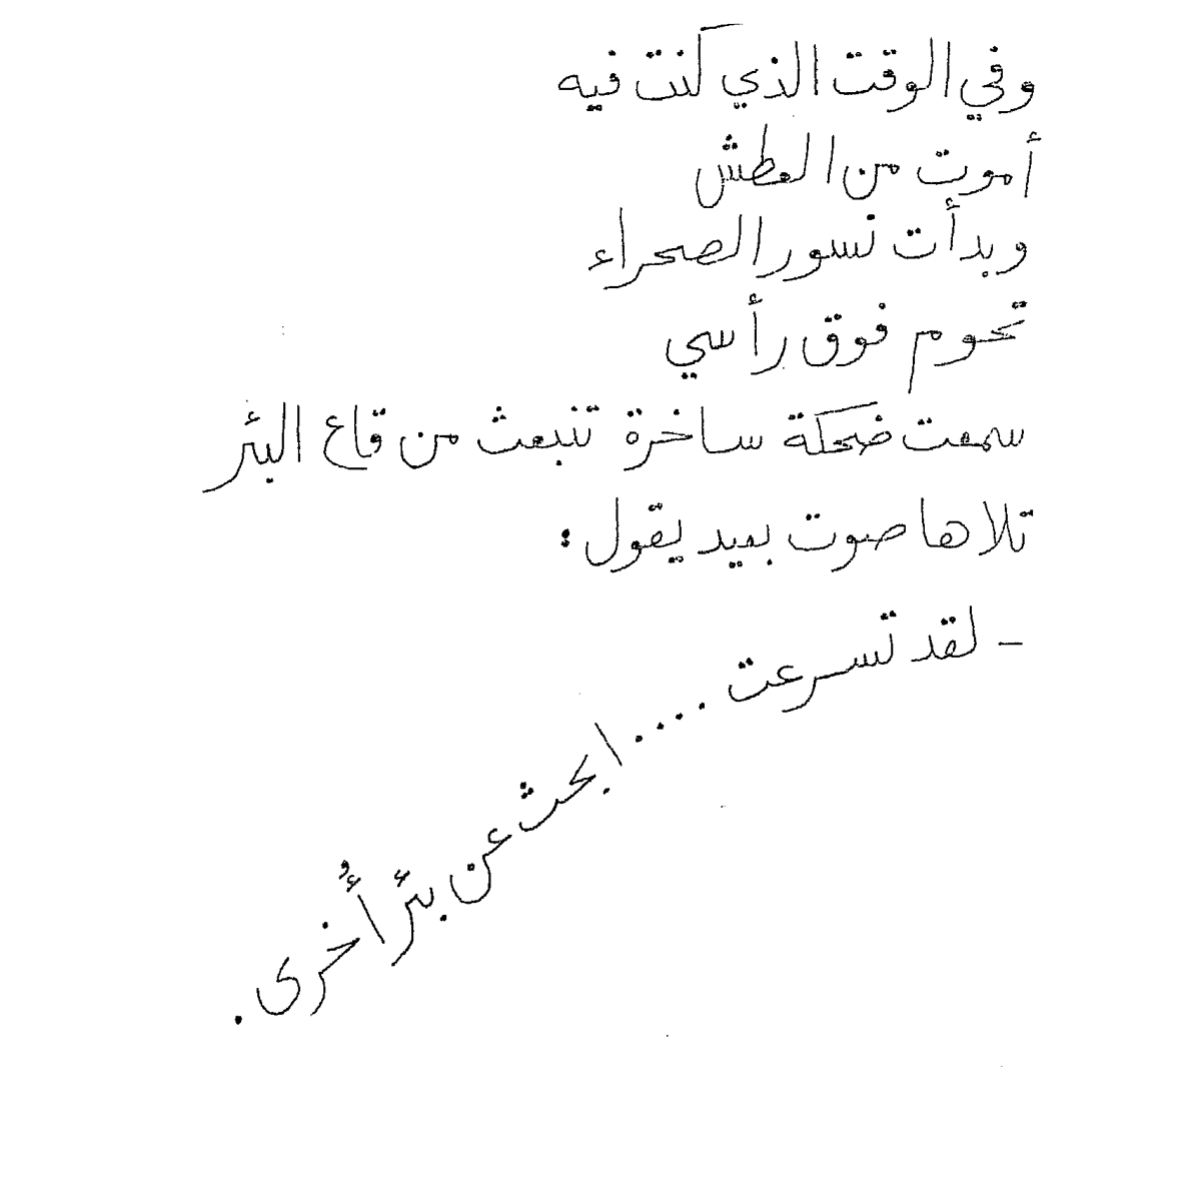 وفي الوقت الذي كنت فيه
أموت من العطش
وبدأت نسور الصحراء
تحوم فوق رأسي
سمعت ضحكة ساخرة تنبعث من قاع البئر
تلاها صوت بعيد يقول:
- لقد تسرعت .... ابحث عن بئر أُخرى.